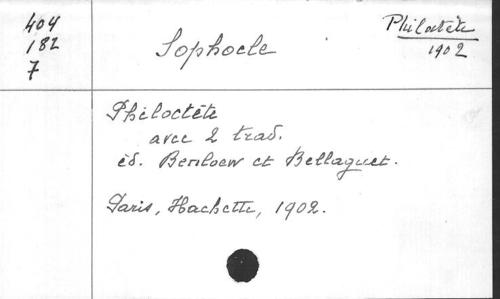 404
182
7
Sophocle
Philoctète
1902
Philoctète
avec 2 trad.
éd. Benloew et Bellaguet.
Paris, Hachette, 1902.